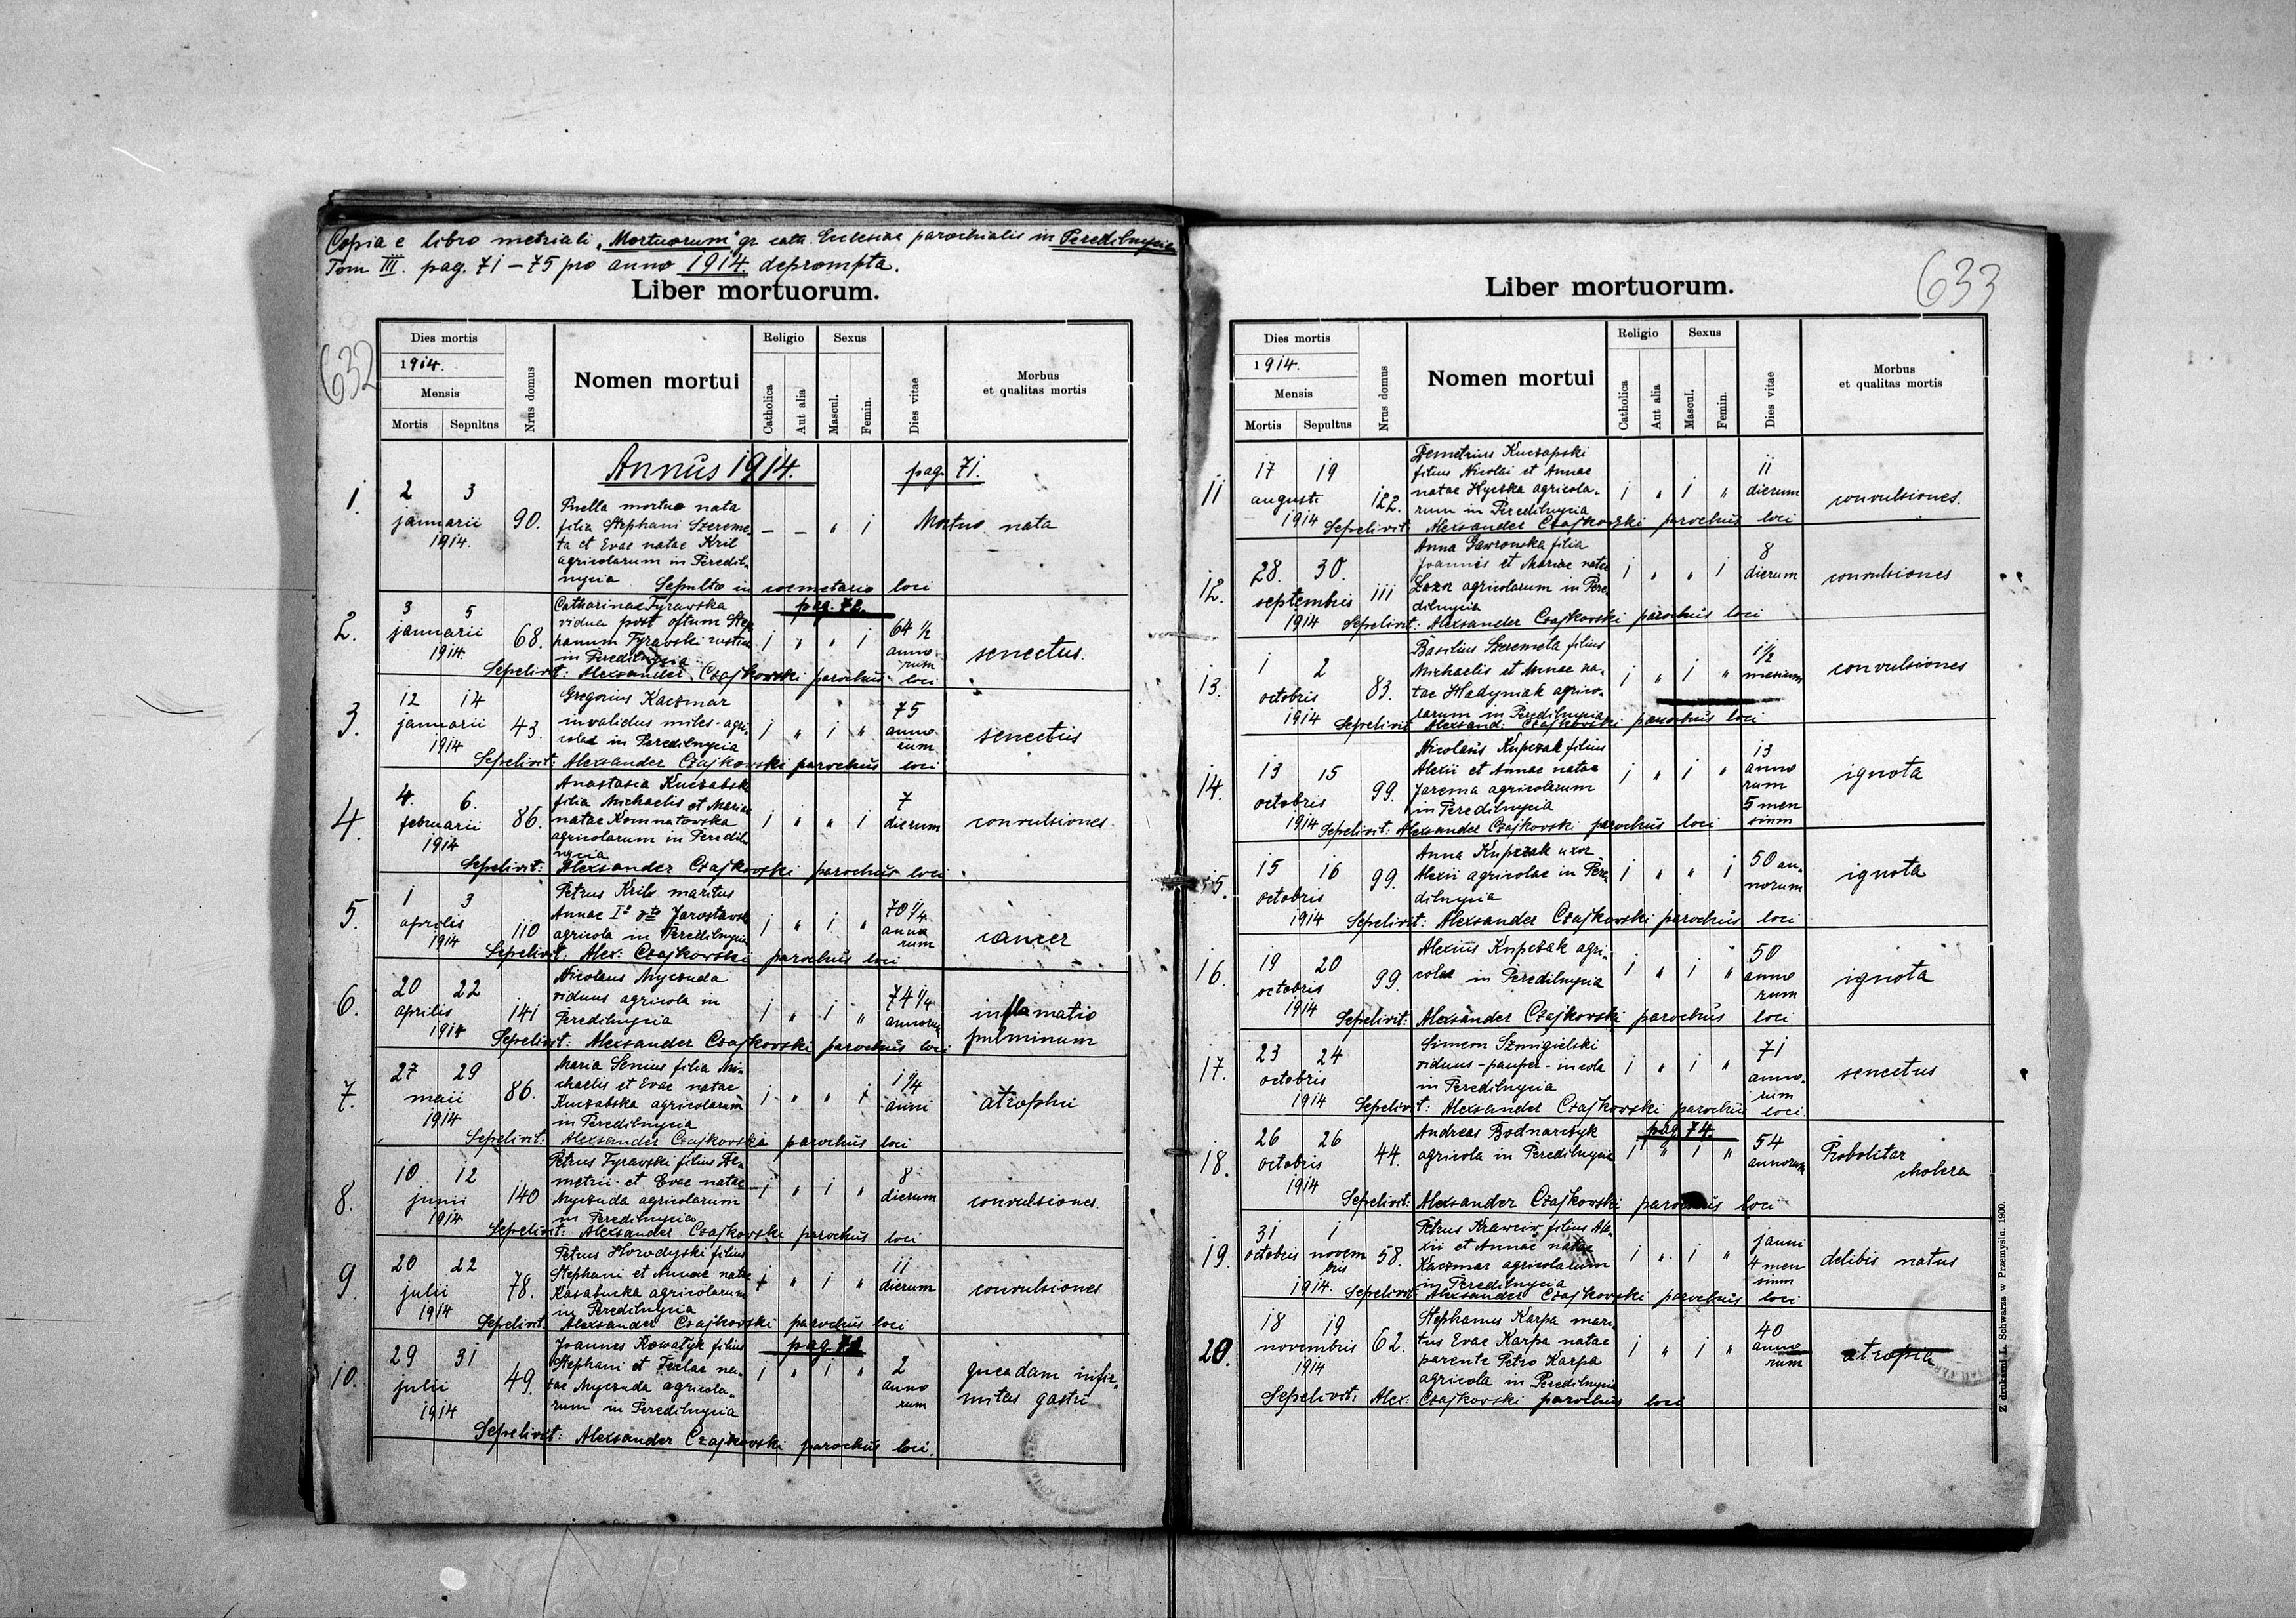 Copia e libro metricali „Mortuorum” gr. cath. Ecclesiae parochialis in Peredilnycia
Tom III. pag. 71–75 pro anno 1914 deprompta.
632
Liber mortuorum.
Dies mortis
1914.
Mensis
Mortis Sepultus
Nrus domus
Nomen mortui
Religio
Catholica
Aut alia
Sexus
Mascul.
Femin.
Dies vitae
Morbus
et qualitas mortis
Annus 1914. pag. 71.
1. 2 3 januarii 1914. 90.
Puella mortuo nata
filia Stephani Szereme-
ta et Evae natae Kril
agricolarum in Peredil-
nycia
— — „ 1 Mortuo nata
Sepulta in coemetario loci
pag. 72.
2. 3 5 januarii 1914. 68.
Catharinae Tyrawska
vidua post Ste-
phanum Tyrawski rustica
in Peredilnycia
1 „ „ 1 64 1/2 annorum senectus.
Sepelivit: Alexander Czajkowski parochus loci
3. 12 14 januarii 1914 43.
Gregorius Kaczmar
invalidus miles - agri-
cola in Peredilnycia
1 „ 1 „ 75 annorum senectus
Sepelivit: Alexander Czajkowski parochus loci
4. 4. 6. februarii 1914 86.
Anastasia Kuczabska
filia Michaelis et Mariae
natae Komnatowska
agricolarum in Peredil-
nycia
1 „ „ 1 7 dierum convulsiones.
Sepelivit: Alexander Czajkowski parochus loci
5. 1 3 aprilis 1914 110
Petrus Krilo maritus
Annae Jarosławska
agricola in Peredilnycia
1 „ 1 „ 70 1/4 annorum cancer
Sepelivit: Alex: Czajkowski parochus loci
6. 20 22 aprilis 1914 141
Nicolaus Myczuda
viduus agricola in
Peredilnycia
1 „ 1 „ 74 1/4 annorum inflamatio
pulminum
Sepelivit: Alexander Czajkowski parochus loci
7. 27 29 maii 1914 86.
Maria Senius filia Mi-
chaelis et Evae natae
Kuczabska agricolarum
in Peredilnycia
1 „ „ 1 1 1/4 anni atrophii
Sepelivit: Alexander Czajkowski parochus loci
8. 10 12 junii 1914 140
Petrus Tyrawski filius De-
metrii et Evae natae
Myczuda agricolarum
in Peredilnycia
1 „ 1 „ 8 dierum convulsiones.
Sepelivit: Alexander Czajkowski parochus loci
9. 20 22 julii 1914 78.
Petrus Horodyski filius
Stephani et Annae natae
Kasaburka agricolarum
in Peredilnycia
1 „ 1 „ 11 dierum convulsiones
Sepelivit: Alexander Czajkowski parochus loci
10. 29 31 julii 1914 49.
Joannes Kowatyk filius
Stephani et Teclae na-
tae Myczuda agricola-
rum in Peredilnycia
1 „ 1 „ 2 annorum queadam infir-
mitas gastri
Sepelivit: Alexander Czajkowski parochus loci.
633
Liber mortuorum.
Dies mortis
1914.
Mensis
Mortis Sepultus
Nrus domus
Nomen mortui
Religio
Catholica
Aut alia
Sexus
Mascul.
Femin.
Dies vitae
Morbus
et qualitas mortis
11 17 19 augusti 1914 122.
Demetrius Kuczapski
filius Nicolai et Annae
natae Hycska agricola-
rum in Peredilnycia
1 „ 1 „ 11 dierum convulsiones.
Sepelivit: Alexander Czajkowski parochus loci
12. 28. 30. septembris 1914 111
Anna Gawronska filia
Joannis et Mariae natae
Lazor agricolarum in Pere-
dilnycia
1 „ „ 1 8 dierum convulsiones
Sepelivit: Alexander Czajkowski parochus loci
13. 1 2 octobris 1914 83.
Basilius Szeremeta filius
Michaelis et Annae na-
tae Hladyniak agrico-
larum in Peredilnycia
1 „ 1 „ 1 1/2 mesium convulsiones
Sepelivit: Alexand: Czajkowski parochus loci
14. 13 15 octobris 1914 99.
Nicolaus Kupczak filius
Alexii et Annae natae
Jarema agricolarum
in Peredilnycia
1 „ 1 „ 13 annorum 5 mensium ignota
Sepelivit: Alexander Czajkowski parochus loci
15. 15 16 octobris 1914 99.
Anna Kupczak uxor
Alexii agricolae in Pere-
dilnycia
1 „ „ 1 50 annorum ignota
Sepelivit: Alexander Czajkowski parochus loci
16. 19 20 octobris 1914 99.
Alexius Kupczak agri-
cola in Peredilnycia
1 „ 1 „ 50 annorum ignota
Sepelivit: Alexander Czajkowski parochus loci
17. 23 24 octobris 1914
Simeon Szmigielski
viduus - pauper - incola
in Peredilnycia
1 „ 1 „ 71 annorum senectus
Sepelivit: Alexander Czajkowski parochus loci.
pag. 74.
18. 26 26 octobris 1914 44.
Andreas Bodnarczyk
agricola in Peredilnycia
1 „ 1 „ 54 annorum Probolitar
cholera
Sepelivit: Alexander Czajkowski parochus loci
19. 31 octobris 1 novembris 1914. 58.
Petrus Krawciw filius Ale-
xii et Annae natae
Kaczmar agricolarum
in Peredilnycia
1 „ 1 „ 1 anni 4 mensium delibis natus
Sepelivit: Alexander Czajkowski parochus loci
20. 18 19 novembris 1914 62.
Stephanus Karpa mari-
tus Evae Karpa natae
parente Petro Karpa
agricola in Peredilnycia
1 „ 1 „ 40 annorum atropia
Sepelivit: Alex: Czajkowski parochus loci
Z drukarni L. Schwarza w Przemyślu. 1900.